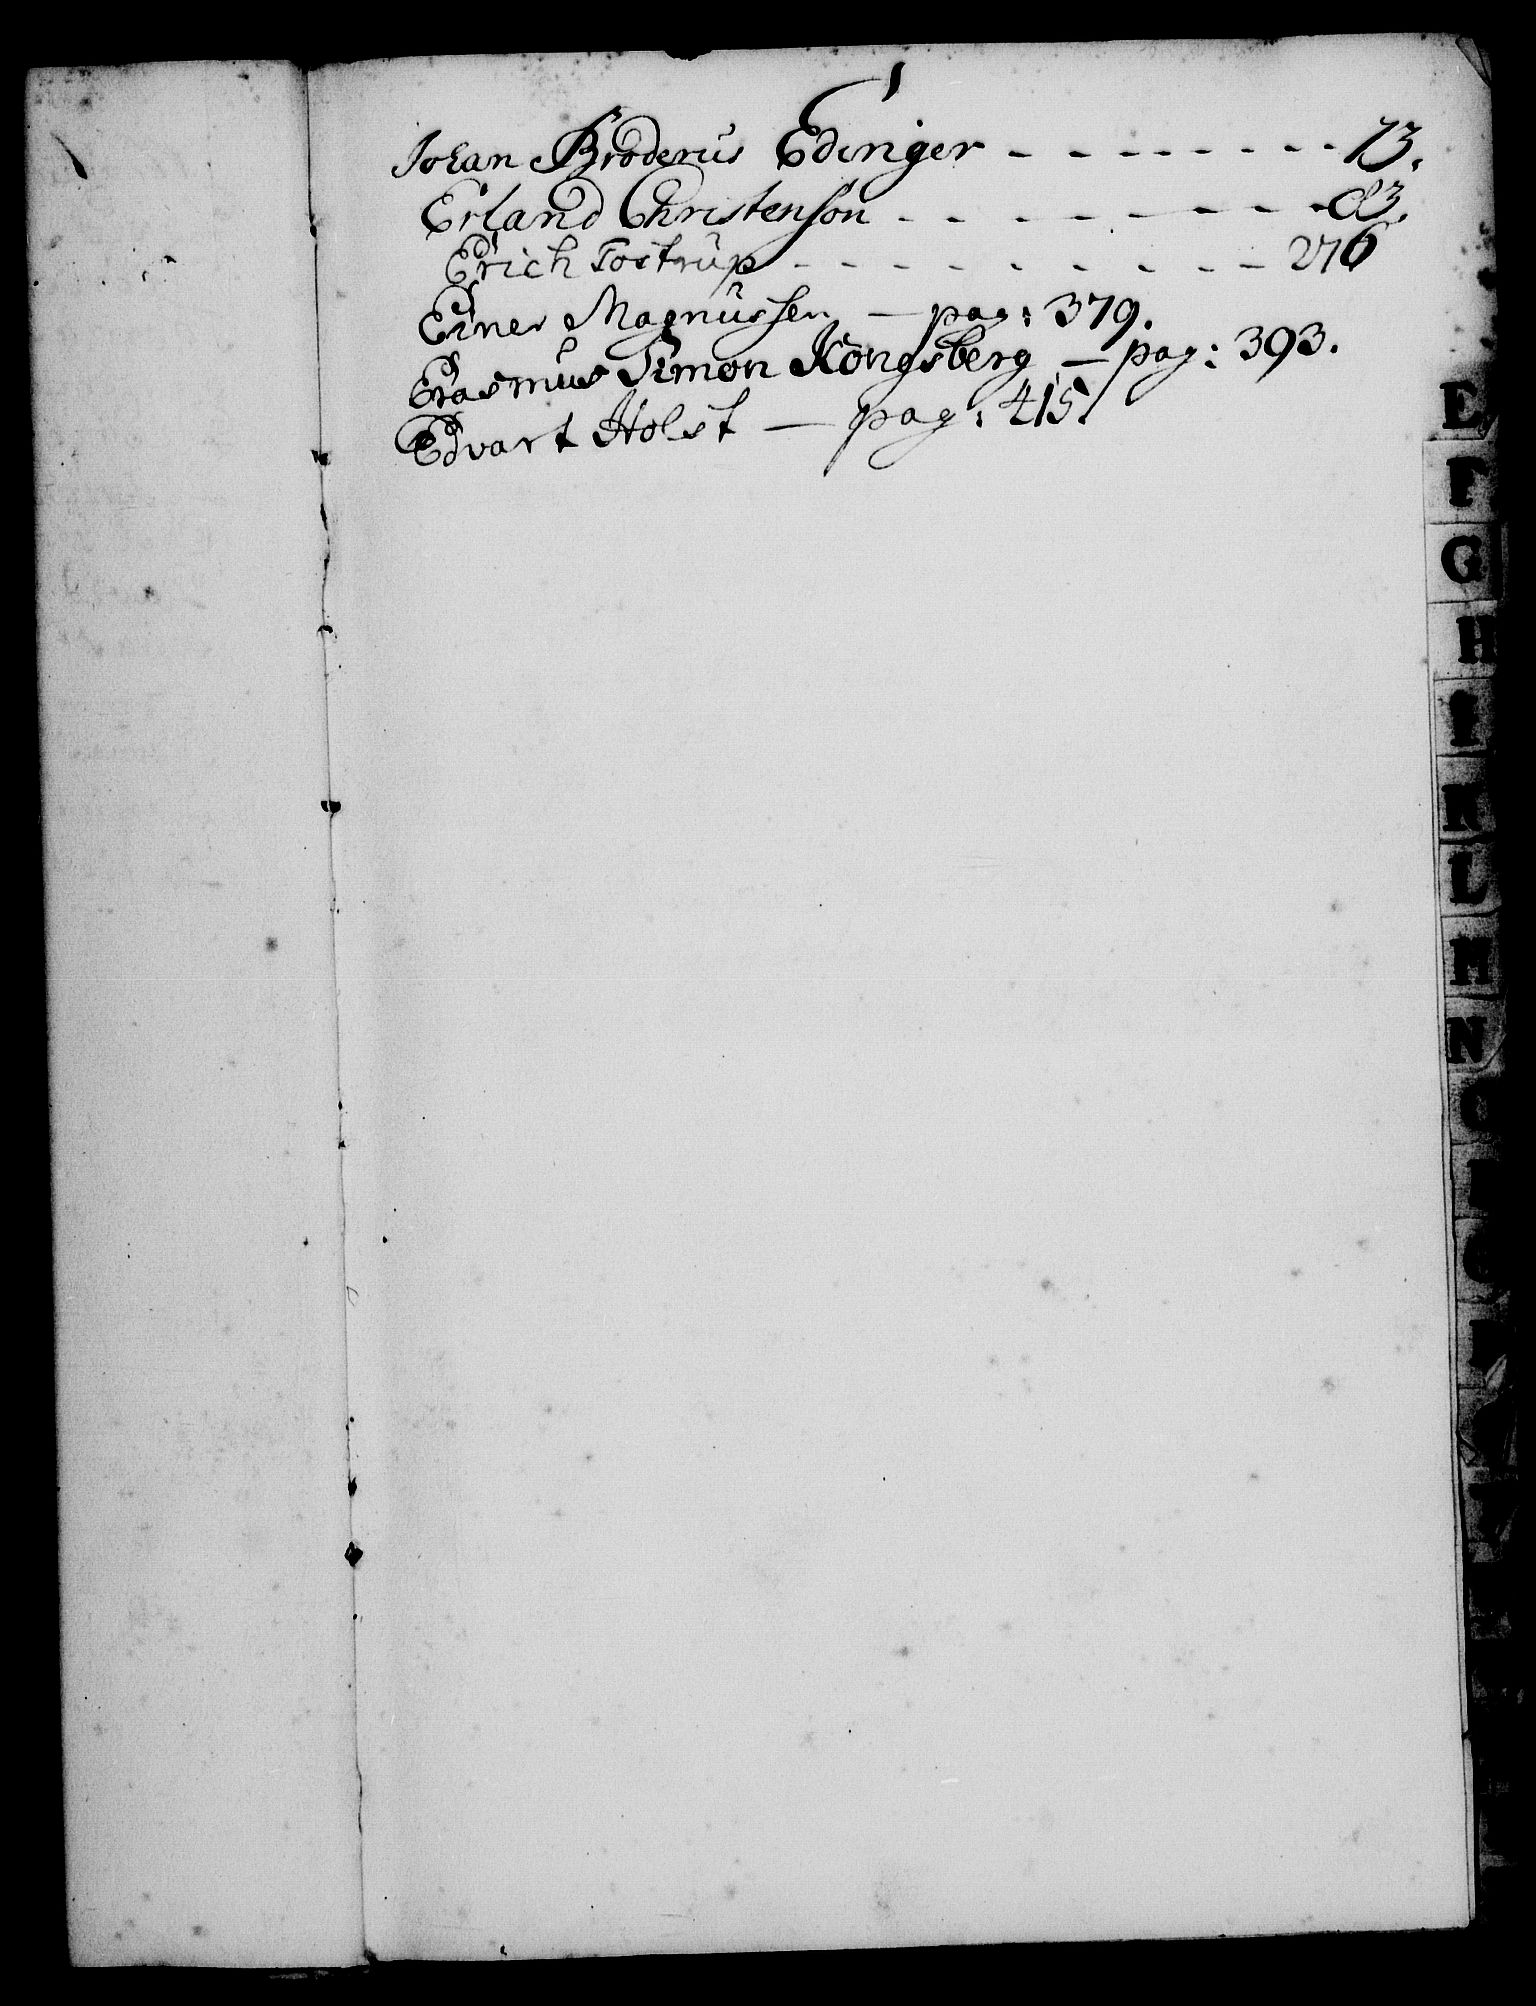 Johan Broderus Edinger - - - - - - - - 73.
Erland Christenson - - - - - - - 83.
Erich Tostrüp - - - - - - - - - 276
Einer Magnüssen — pag: 379.
Erasmus Simon Kongsberg — pag: 393.
Edvart Holst — pag: 415.
E
F
G
H
I
K
L
M
N
O